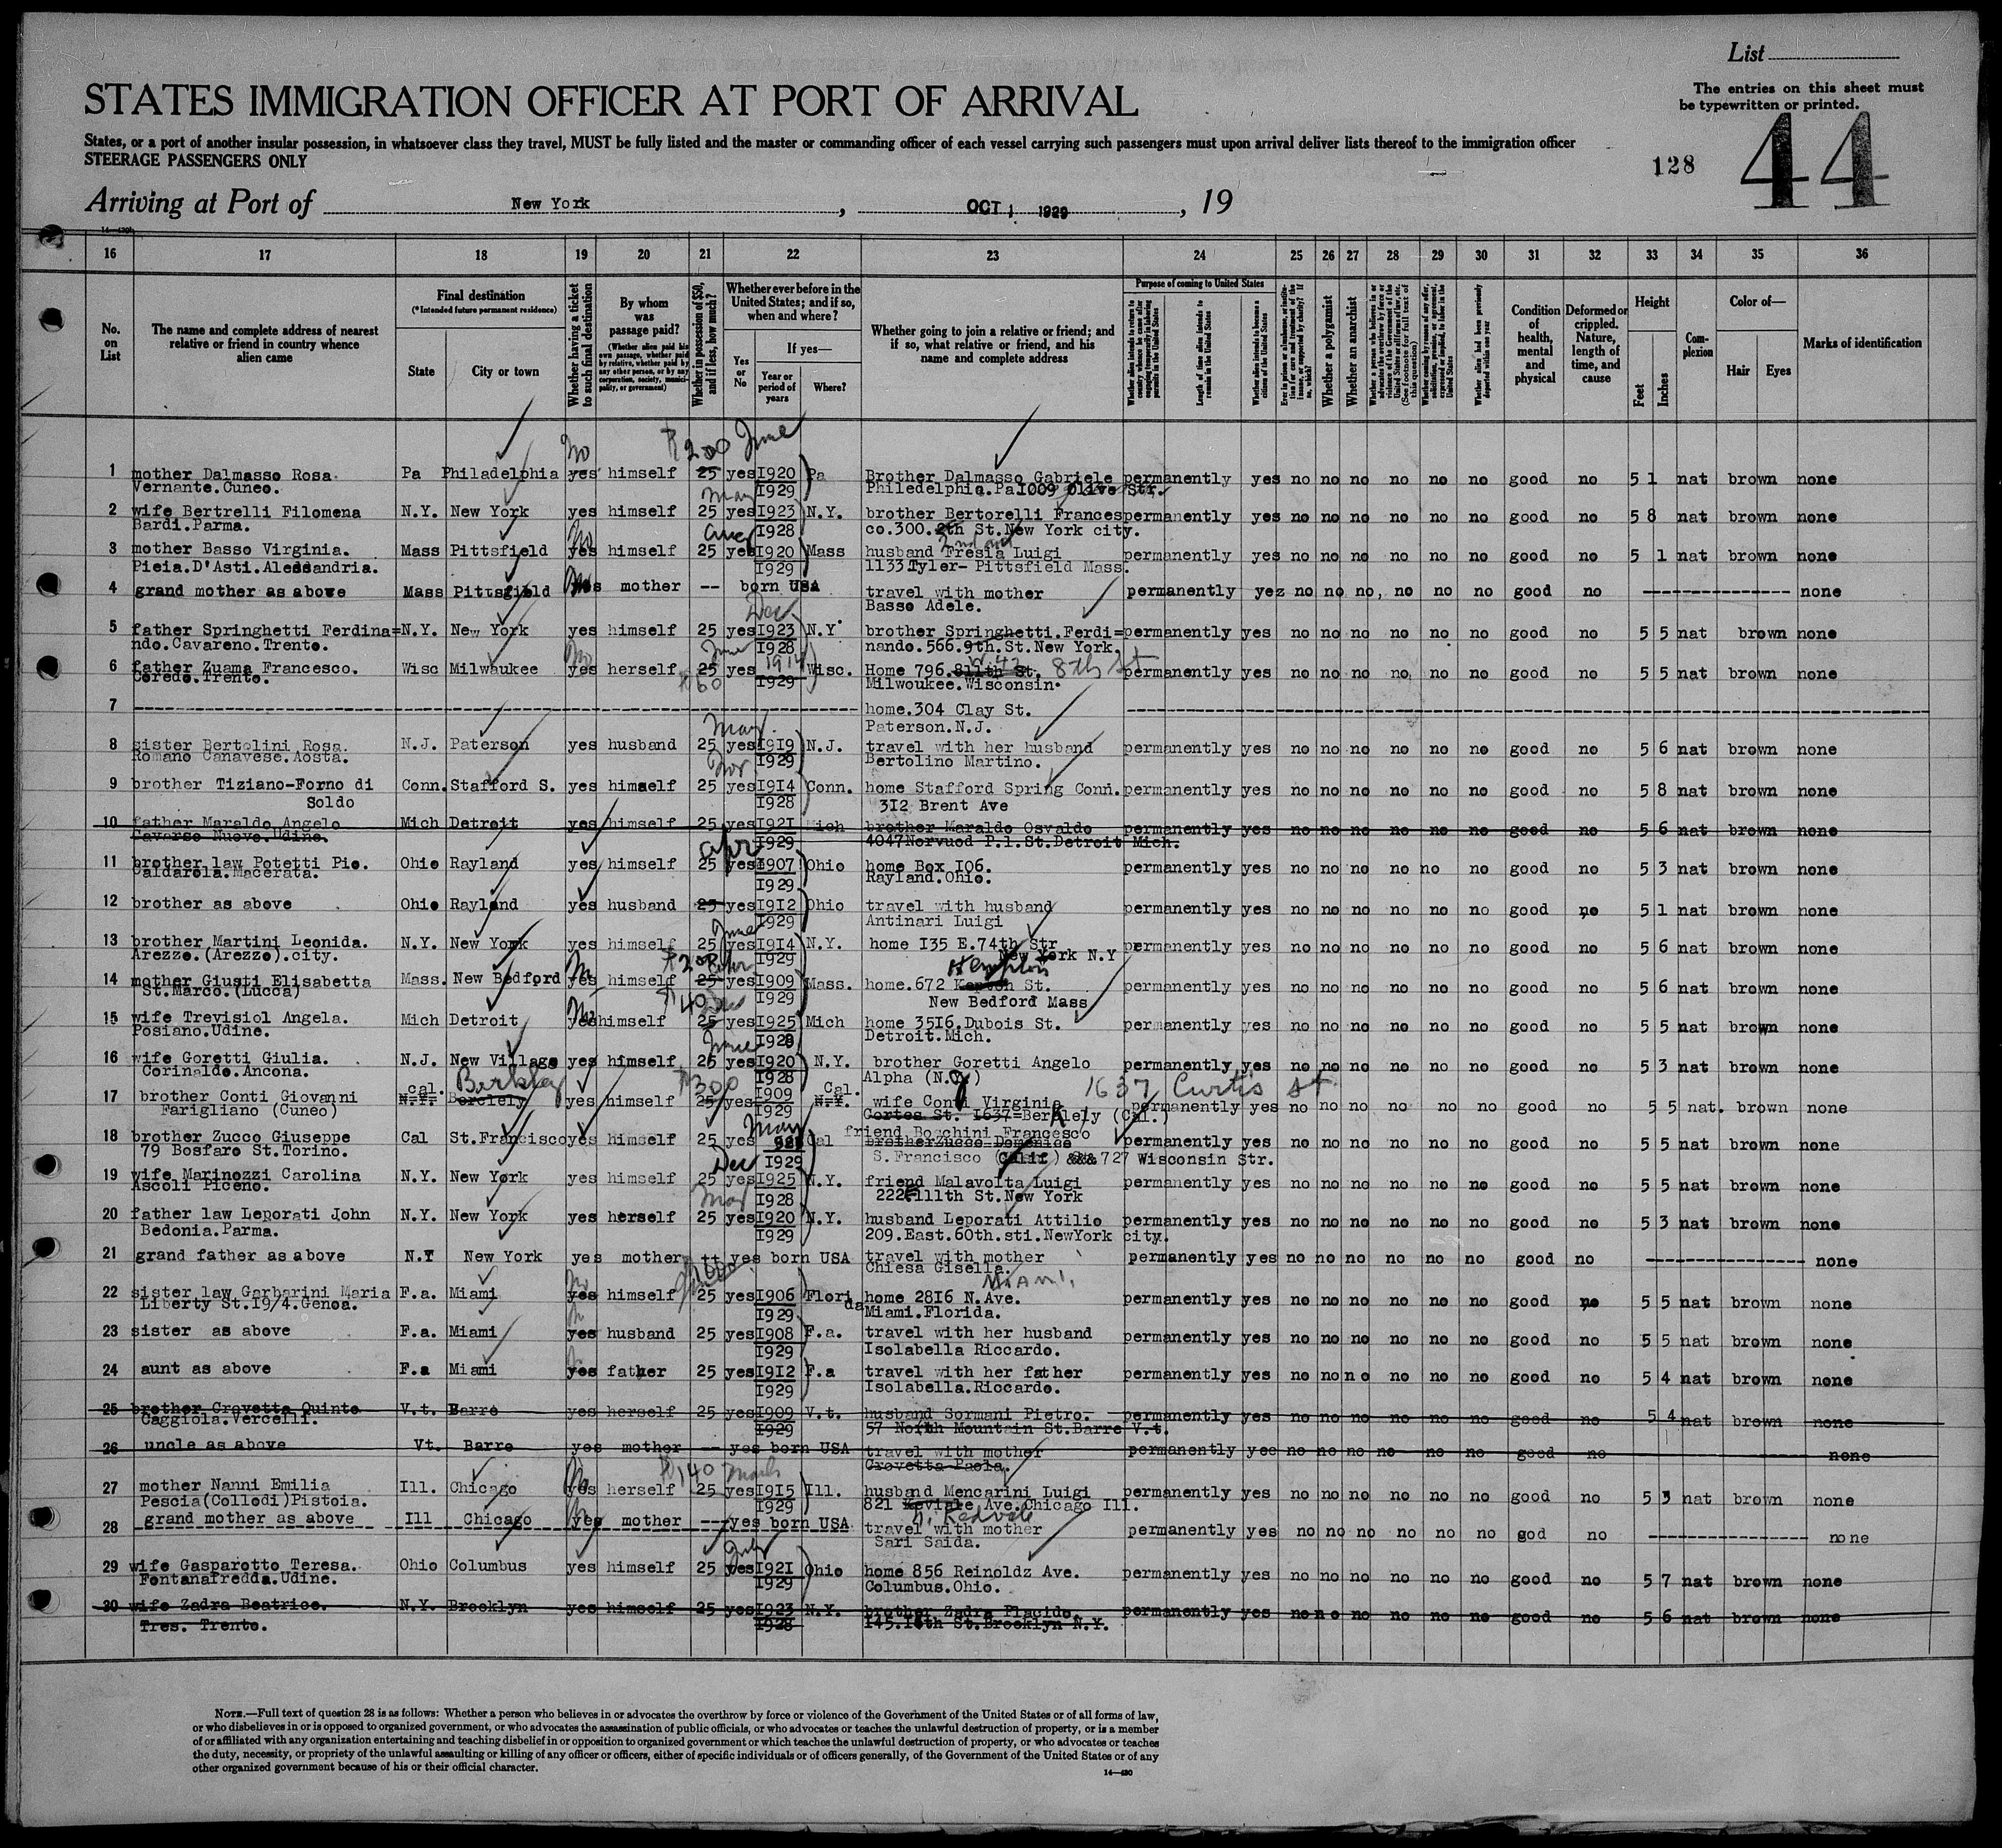 List
The entries on this sheet must
be typewritten or printed.
STATES IMMIGRATION OFFICER AT PORT OF ARRIVAL
44
States, or a port of another insular possession, in whatsoever class they travel, MUST be fully listed and the master or commanding officer of each vessel carrying such passengers must upon arrival deliver lists thereof to the immigration officer
STEERAGE PASSENGERS ONLY
128
Arriving at Port of New York, OCT 1 1929, 19
16 17 18 19 20 21 22 23 24 25 26 27 28 29 30 31 32 33 34 35 36
No. on List
The name and complete address of nearest relative or friend in country whence alien came
Final destination
(*Intended future permanent residence)
State City or town
Whether having a ticket to such final destination
By whom was passage paid?
(Whether alien paid his own passage, whether paid by relative, whether paid by any other person, or by any corporation, society, municipality, or government)
Whether in possession of $50, and if less, how much?
Whether ever before in the United States; and if so, when and where?
Yes or No
If yes—
Year or period of years
Where?
Whether going to join a relative or friend; and if so, what relative or friend, and his name and complete address
Purpose of coming to United States
Length of time alien intends to remain in the United States
Whether alien intends to become a citizen of the United States
Whether a polygamist
Whether an anarchist
Condition of health, mental and physical
Deformed or crippled. Nature, length of time, and cause
Height
Feet Inches
Complexion
Color of—
Hair Eyes
Marks of identification
No $200 June
1 mother Dalmasso Rosa. Pa Philadelphia yes himself 25 yes 1920 Pa Brother Dalmasso Gabriele permanently yes no no no no no no good no 5 1 nat brown none
Vernante.Cuneo. 1929 Philedelphia.Pa.1009 Olive Str.
May
2 wife Bertrelli Filomena N.Y. New York yes himself 25 yes 1923 N.Y. brother Bertorelli Frances permanently yes no no no no no no good no 5 8 nat brown none
Bardi.Parma. 1928 co.300. 8th St.New York city.
No 2nd ave
3 mother Basso Virginia. Mass Pittsfield yes himself 25 yes 1920 Mass husband Fresia Luigi permanently yes no no no no no no good no 5 1 nat brown none
Pieia.D'Asti.Alessandria. 1929 1133 Tyler- Pittsfield Mass.
4 grand mother as above Mass Pittsfield yes mother -- born USA travel with mother permanently yez no no no, no no no good no ---- none
Basso Adele.
Dec
5 father Springhetti Ferdina= N.Y. New York yes himself 25 yes 1923 N.Y. brother Springhetti.Ferdi= permanently yes no no no no no no good no 5 5 nat brown none
ndo.Cavareno.Trento. 1928 nando.566.9th.St.New York.
No June
6 father Zuama Francesco. Wisc Milwaukee yes herself 25 yes 1914 Wisc. Home 796. 811th St. 8th St permanently yes no no no no no no good no 5 5 nat brown none
Coredo.Trento. $60 1929 Milwoukee.Wisconsin.
7 ---- home.304 Clay St.
May Paterson.N.J.
8 sister Bertolini Rosa. N.J. Paterson yes husband 25 yes 1919 N.J. travel with her husband permanently yes no no no no no no good no 5 6 nat brown none
Romano Canavese.Aosta. 1929 Bertolino Martino.
Nov
9 brother Tiziano-Forno di Conn. Stafford S. yes himself 25 yes 1914 Conn. home Stafford Spring Conn. permanently yes no no no no no no good no 5 8 nat brown none
Soldo 1928 312 Brent Ave
10 father Maraldo Angelo Mich Detroit yes himself 25 yes 1921 Mich brother Maraldo Osvaldo permanently yes no no no no no no good no 5 6 nat brown none
Cavarso Nuovo.Udine. 1929 4047 Norvuod P.l.St.Detroit Mich.
apr
11 brother law Potetti Pio. Ohio Rayland yes himself 25 yes 1907 Ohio home Box 106. permanently yes no no no no no no good no 5 3 nat brown none
Caldarola.Macerata. 1929 Rayland.Ohio.
12 brother as above Ohio Rayland yes husband 25 yes 1912 Ohio travel with husband permanently yes no no no no no no good no 5 1 nat brown none
1929 Antinari Luigi
June
13 brother Martini Leonida. N.Y. New York yes himself 25 yes 1914 N.Y. home 135 E.74th Str permanently yes no no no no no no good no 5 6 nat brown none
Arezzo.(Arezzo).city. 1929 New York N.Y
$200 Kempton
14 mother Giusti Elisabetta Mass. New Bedford yes himself 25 yes 1909 Mass. home.672 St. permanently yes no no no no no no good no 5 6 nat brown none
St.Marco.(Lucca) 1929 New Bedford Mass
No $40 Dec
15 wife Trevisiol Angela. Mich Detroit yes himself 25 yes 1925 Mich home 3516.Dubois St. permanently yes no no no no no no good no 5 5 nat brown none
Posiano.Udine. 1928 Detroit.Mich.
June
16 wife Goretti Giulia. N.J. New Village yes himself 25 yes 1920 N.Y. brother Goretti Angelo permanently yes no no no no no no good no 5 3 nat brown none
Corinaldo.Ancona. 1928 Alpha (N.J)
cal. Berkley $300 Cal. 1637 Curtis St
17 brother Conti Giovanni N.Y. Berclely yes himself 25 yes 1909 N.Y. wife Conti Virginia permanently yes no no no no no no good no 5 5 nat. brown none
Farigliano (Cuneo) 1929 Cortes St. 1637=Berklely (Cal.)
May friend Boschini Francesco
18 brother Zucco Giuseppe Cal St.Francisco yes himself 25 yes Cal brother Zucco Domenico permanently yes no no no no no no good no 5 5 nat brown none
79 Bosfaro St.Torino. 1929 S.Francisco (Calif) &&& 727 Wisconsin Str.
Dec
19 wife Marinozzi Carolina N.Y. New York yes himself 25 yes 1925 N.Y. friend Malavolta Luigi permanently yes no no no no no no good no 5 5 nat brown none
Ascoli Piceno. 1928 222E 111th St.New York
May
20 father law Leporati John N.Y. New York yes herself 25 yes 1920 N.Y. husband Leporati Attilio permanently yes no no no no no no good no 5 3 nat brown none
Bedonia.Parma. 1929 209.East.60th.sti.NewYork city.
21 grand father as above N.Y New York yes mother -- yes born USA travel with mother permanently yes no no no no no no good no ---- none
Chiesa Gisella.
No MIAMI.
22 sister law Garbarini Maria F.a. Miami yes himself 25 yes 1906 Florida home 2816 N.Ave. permanently yes no no no no no no good no 5 5 nat brown none
Liberty St.19/4.Genoa. 1929 Miami.Florida.
23 sister as above F.a. Miami yes husband 25 yes 1908 F.a. travel with her husband permanently yes no no no no no no good no 5 5 nat brown none
1929 Isolabella Riccardo.
24 aunt as above F.a Miami yes father 25 yes 1912 F.a travel with her father permanently yes no no no no no no good no 5 4 nat brown none
1929 Isolabella.Riccardo.
25 brother Crovetta Quinto V.t. Barre yes herself 25 yes 1909 V.t. husband Sormani Pietro. permanently yes no no no no no no good no 5 4 nat brown none
Caggiola.Vercelli. 1929 57 North Mountain St.Barre V.t.
26 uncle as above Vt. Barre yes mother -- yes born USA travel with mother permanently yes no no no no no no good no none
Crovetta Paola.
No $140 March
27 mother Nanni Emilia Ill. Chicago yes herself 25 yes 1915 Ill. husband Mencarini Luigi permanently yes no no no no no no good no 5 3 nat brown none
Pescia(Collodi)Pistoia. 1929 821 Ave.Chicago Ill.
N. Kedvale
28 grand mother as above Ill Chicago yes mother -- yes born USA travel with mother permanently yes no no no no no no god no ---- none
Sari Saida.
July
29 wife Gasparotto Teresa. Ohio Columbus yes himself 25 yes 1921 Ohio home 856 Reinoldz Ave. permanently yes no no no no no no good no 5 7 nat brown none
Fontanafredda.Udine. 1929 Columbus.Ohio.
30 wife Zadra Beatrice. N.Y. Brooklyn yes himself 25 yes 1923 N.Y. brother Zadra Placido. permanently yes no no no no no no good no 5 6 nat brown none
Tres. Trento. 1928 145.16th St.Brooklyn N.Y.
NOTE.—Full text of question 28 is as follows: Whether a person who believes in or advocates the overthrow by force or violence of the Government of the United States or of all forms of law,
or who disbelieves in or is opposed to organized government, or who advocates the assassination of public officials, or who advocates or teaches the unlawful destruction of property, or is a member
of or affiliated with any organization entertaining and teaching disbelief in or opposition to organized government or which teaches the unlawful destruction of property, or who advocates or teaches
the duty, necessity, or propriety of the unlawful assaulting or killing of any officer or officers, either of specific individuals or of officers generally, of the Government of the United States or of any
other organized government because of his or their official character.
14—430